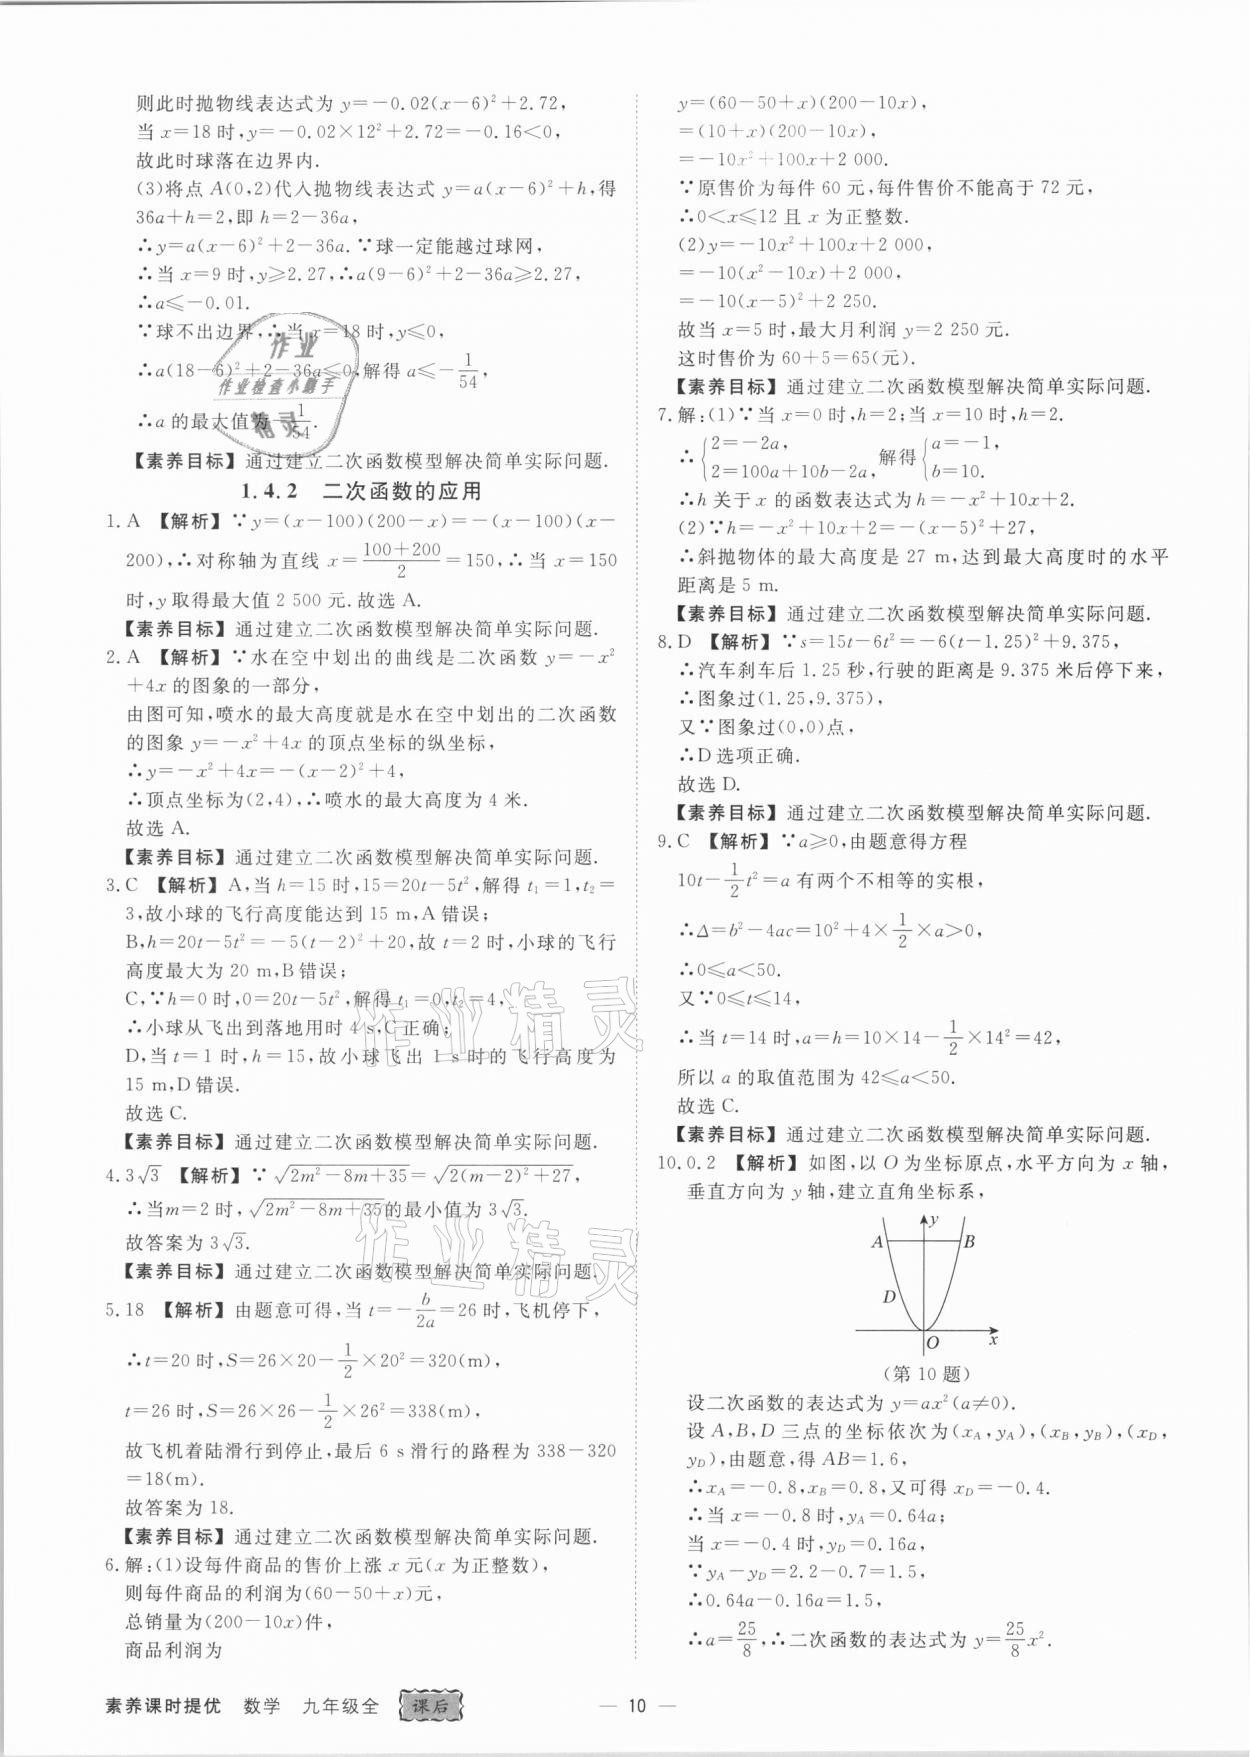 则此时抛物线表达式为 y=-0.02(x-6)²+2.72,
当 x=18 时,y=-0.02×12²+2.72=-0.16<0,
故此时球落在边界内.
(3)将点 A(0,2)代入抛物线表达式 y=a(x-6)²+h,得
36a+h=2,即 h=2-36a,
∴y=a(x-6)²+2-36a.∵球一定能越过球网,
∴当 x=9 时,y≥2.27,∴a(9-6)²+2-36a≥2.27,
∴a≤-0.01.
∵球不出边界,∴当 x=18 时,y≤0,
∴a(18-6)²+2-36a≤0,解得 a≤-1/54,
∴a 的最大值为-1/54.
【素养目标】通过建立二次函数模型解决简单实际问题.
1.4.2 二次函数的应用
1.A 【解析】∵y=(x-100)(200-x)=-(x-100)(x-
200),∴对称轴为直线 x=(100+200)/2=150,∴当 x=150
时,y 取得最大值 2 500 元.故选 A.
【素养目标】通过建立二次函数模型解决简单实际问题.
2.A 【解析】∵水在空中划出的曲线是二次函数 y=-x²
+4x 的图象的一部分,
由图可知,喷水的最大高度就是水在空中划出的二次函数
的图象 y=-x²+4x 的顶点坐标的纵坐标,
∴y=-x²+4x=-(x-2)²+4,
∴顶点坐标为(2,4),∴喷水的最大高度为 4 米.
故选 A.
【素养目标】通过建立二次函数模型解决简单实际问题.
3.C 【解析】A,当 h=15 时,15=20t-5t²,解得 t₁=1,t₂=
3,故小球的飞行高度能达到 15 m,A 错误;
B,h=20t-5t²=-5(t-2)²+20,故 t=2 时,小球的飞行
高度最大为 20 m,B错误;
C,∵h=0 时,0=20t-5t²,解得 t₁=0,t₂=4,
∴小球从飞出到落地用时 4 s,C正确;
D,当 t=1 时,h=15,故小球飞出 1 s 时的飞行高度为
15 m,D 错误.
故选 C.
【素养目标】通过建立二次函数模型解决简单实际问题.
4.3√3 【解析】∵√(2m²-8m+35)=√(2(m-2)²+27),
∴当m=2 时,√(2m²-8m+35)的最小值为 3√3.
故答案为 3√3.
【素养目标】通过建立二次函数模型解决简单实际问题.
5.18 【解析】由题意可得,当 t=-b/2a=26 时,飞机停下,
∴t=20 时,S=26×20-1/2×20²=320(m),
t=26 时,S=26×26-1/2×26²=338(m),
故飞机着陆滑行到停止,最后 6 s 滑行的路程为 338-320
=18(m).
故答案为 18.
【素养目标】通过建立二次函数模型解决简单实际问题.
6.解:(1)设每件商品的售价上涨 x 元(x 为正整数),
则每件商品的利润为(60-50+x)元,
总销量为(200-10x)件,
商品利润为
y=(60-50+x)(200-10x),
=(10+x)(200-10x),
=-10x²+100x+2 000.
∵原售价为每件 60 元,每件售价不能高于 72 元,
∴0<x≤12 且 x 为正整数.
(2)y=-10x²+100x+2 000,
=-10(x²-10x)+2 000,
=-10(x-5)²+2 250.
故当 x=5 时,最大月利润 y=2 250 元.
这时售价为 60+5=65(元).
【素养目标】通过建立二次函数模型解决简单实际问题.
7.解:(1)∵当 x=0 时,h=2;当 x=10 时,h=2.
∴{2=-2a, 2=100a+10b-2a, 解得{a=-1, b=10.
∴h 关于 x 的函数表达式为 h=-x²+10x+2.
(2)∵h=-x²+10x+2=-(x-5)²+27,
∴斜抛物体的最大高度是 27 m,达到最大高度时的水平
距离是 5 m.
【素养目标】通过建立二次函数模型解决简单实际问题.
8.D 【解析】∵s=15t-6t²=-6(t-1.25)²+9.375,
∴汽车刹车后 1.25 秒,行驶的距离是 9.375 米后停下来,
∴图象过(1.25,9.375),
又∵图象过(0,0)点,
∴D 选项正确.
故选 D.
【素养目标】通过建立二次函数模型解决简单实际问题.
9.C 【解析】∵a≥0,由题意得方程
10t-1/2t²=a 有两个不相等的实根,
∴Δ=b²-4ac=10²+4×1/2×a>0,
∴0≤a<50.
又∵0≤t≤14,
∴当 t=14 时,a=h=10×14-1/2×14²=42,
所以 a 的取值范围为 42≤a<50.
故选 C.
【素养目标】通过建立二次函数模型解决简单实际问题.
10.0.2 【解析】如图,以 O 为坐标原点,水平方向为 x 轴,
垂直方向为 y 轴,建立直角坐标系,
y
A B
D
O x
(第 10 题)
设二次函数的表达式为 y=ax²(a≠0).
设 A,B,D 三点的坐标依次为(x_A,y_A),(x_B,y_B),(x_D,
y_D),由题意,得 AB=1.6,
∴x_A=-0.8,x_B=0.8,又可得 x_D=-0.4.
∴当 x=-0.8 时,y_A=0.64a;
当 x=-0.4 时,y_D=0.16a,
∵y_A-y_D=2.2-0.7=1.5,
∴0.64a-0.16a=1.5,
∴a=25/8,∴二次函数的表达式为 y=25/8x².
素养课时提优 数学 九年级全 课后
— 10 —
作业
作业检查小助手
精灵
作业精灵
作业精灵